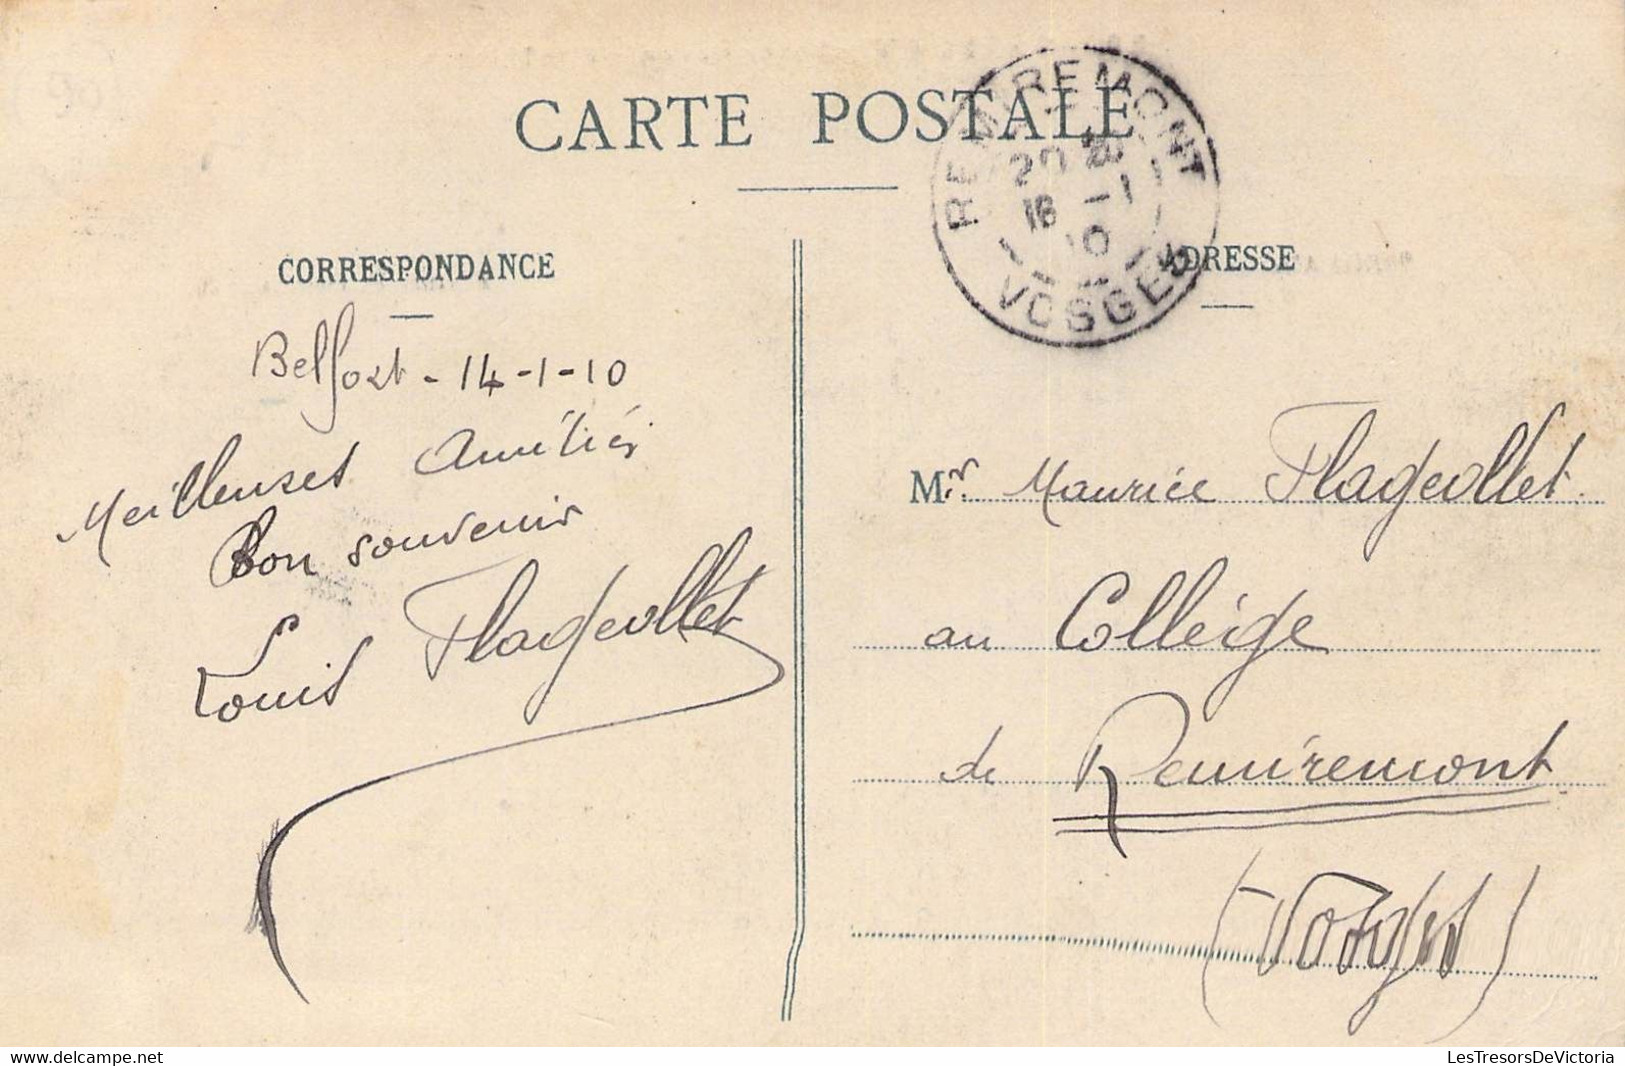 CARTE POSTALE
REMIREMONT
20
16 -1
10
VOSGES
CORRESPONDANCE
Belfort - 14-1-10
Meilleuses Amitiés
Bon souvenir
Louis Flageollet
ADRESSE
Mr. Maurice Flageollet
au Collège
de Remiremont
(Vosges)
LesTresorsDeVictoria